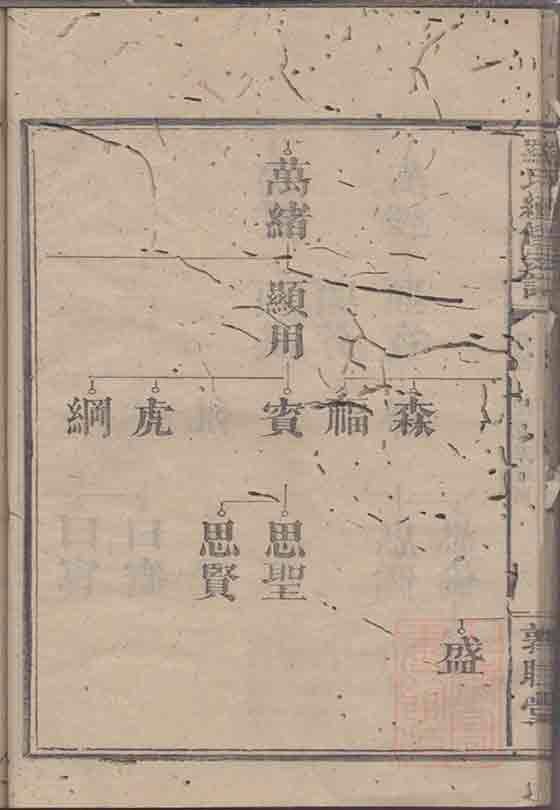 萬緒
顯用
森
福
賓
虎
綱
思聖
思賢
盛
敦睦堂